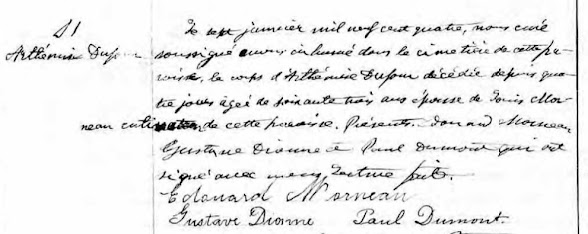 S1
Arthémise Dufour
Le sept janvier mil neuf cent quatre, nous curé
soussigné avons inhumé dans le cimetière de cette pa-
roisse, le corps d'Arthémise Dufour décédée depuis qua-
tre jours âgée de soixante trois ans épouse de Louis Mor-
neau de cette paroisse. Présents Morneau
Gustave Dionne & Paul Dumont qui ont
signé avec nous, lecture faite.
Edouard Morneau
Gustave Dionne Paul Dumont.